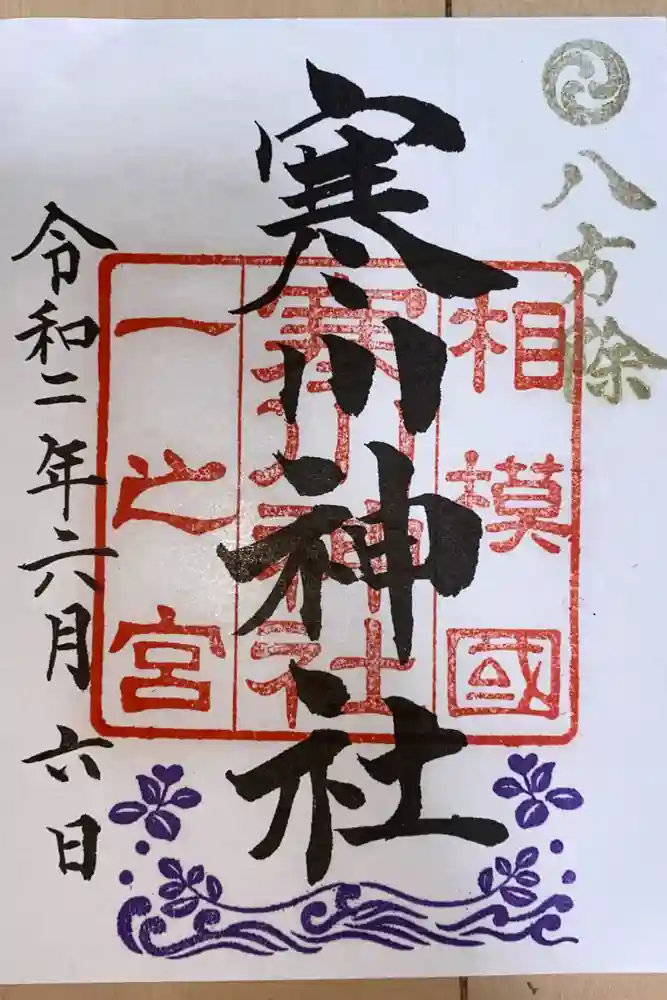 八方除
相模國
寒川神社
一之宮
寒川神社
令和二年六月六日